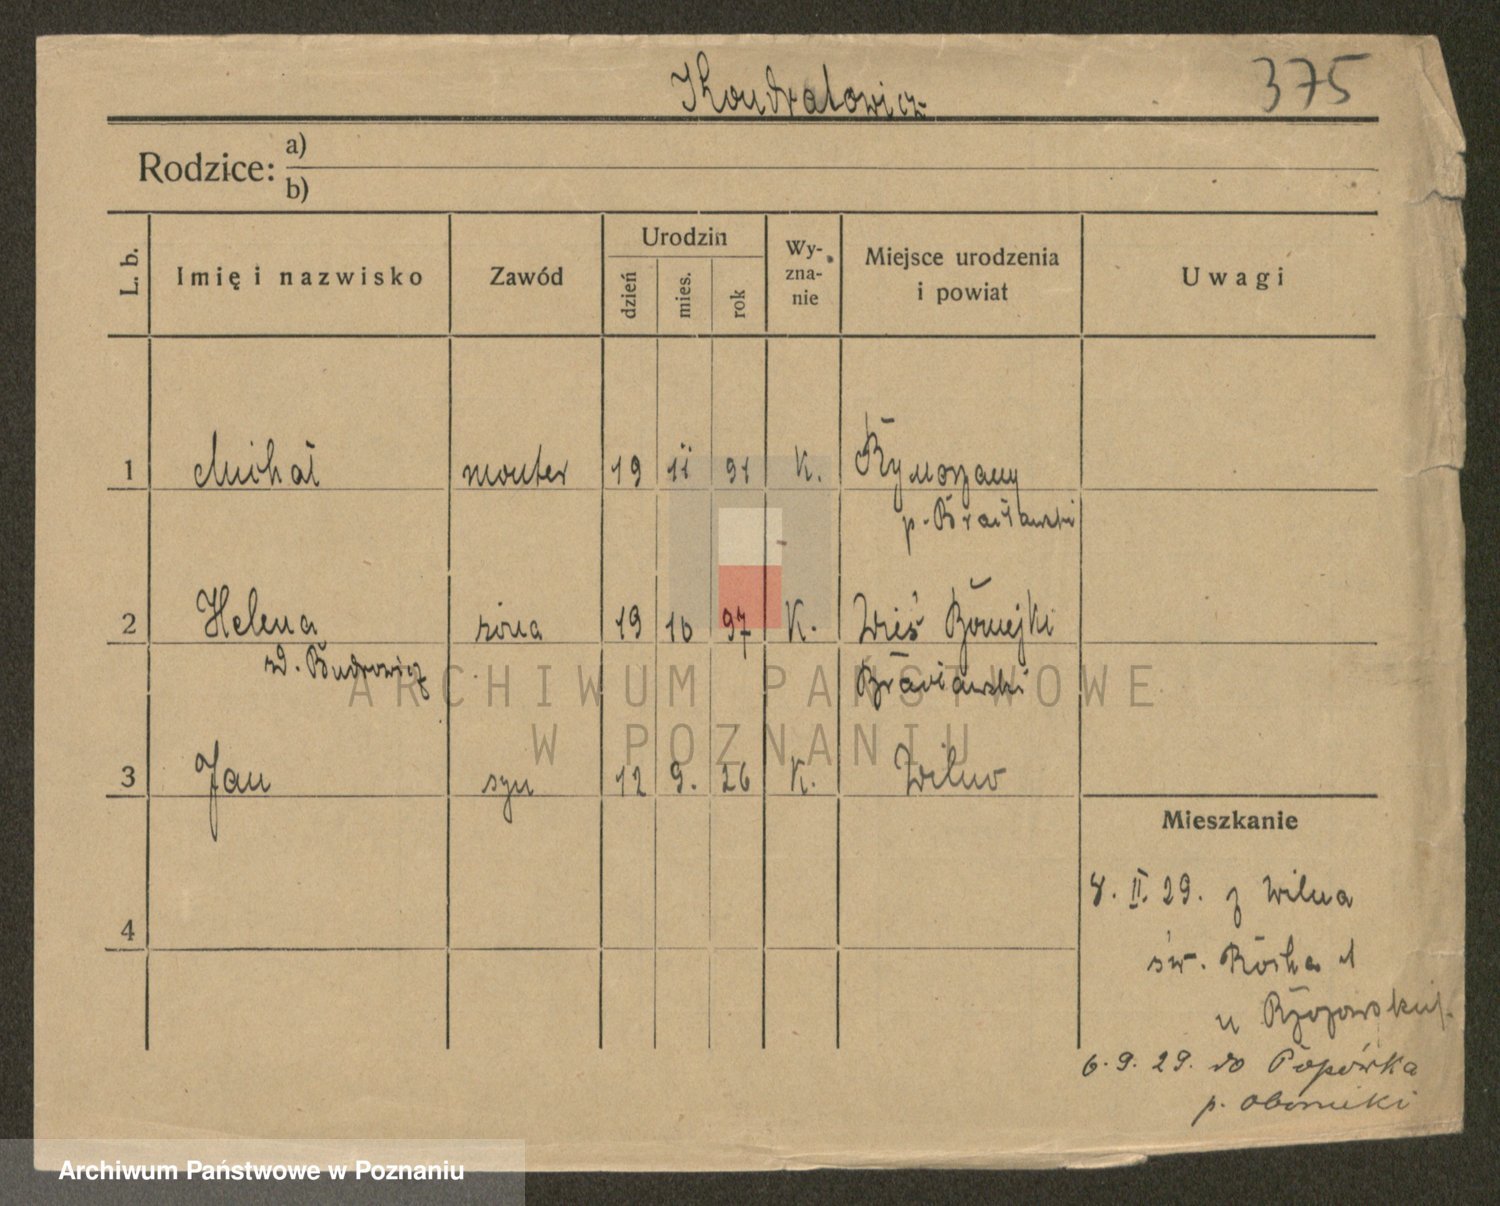 Kondratowicz
375
Rodzice: a)
b)
L. b.
Imię i nazwisko
Zawód
Urodzin
dzień
mies.
rok
Wy-
zna-
nie
Miejsce urodzenia
i powiat
Uwagi
1 Michał monter 19 11 91 K.
p. Bracławski
2 Helena żona 19 10 97 K. Wieś
zd. Budrowicz
ARCHIWUM PAŃSTWOWE
W POZNANIU
3 Jan syn 12 9. 26 K. Wilno
Mieszkanie
4
8. II. 29. z Wilna
św. Rocha
u
6. 9. 29. do Popówka
p. Oborniki
Archiwum Państwowe w Poznaniu